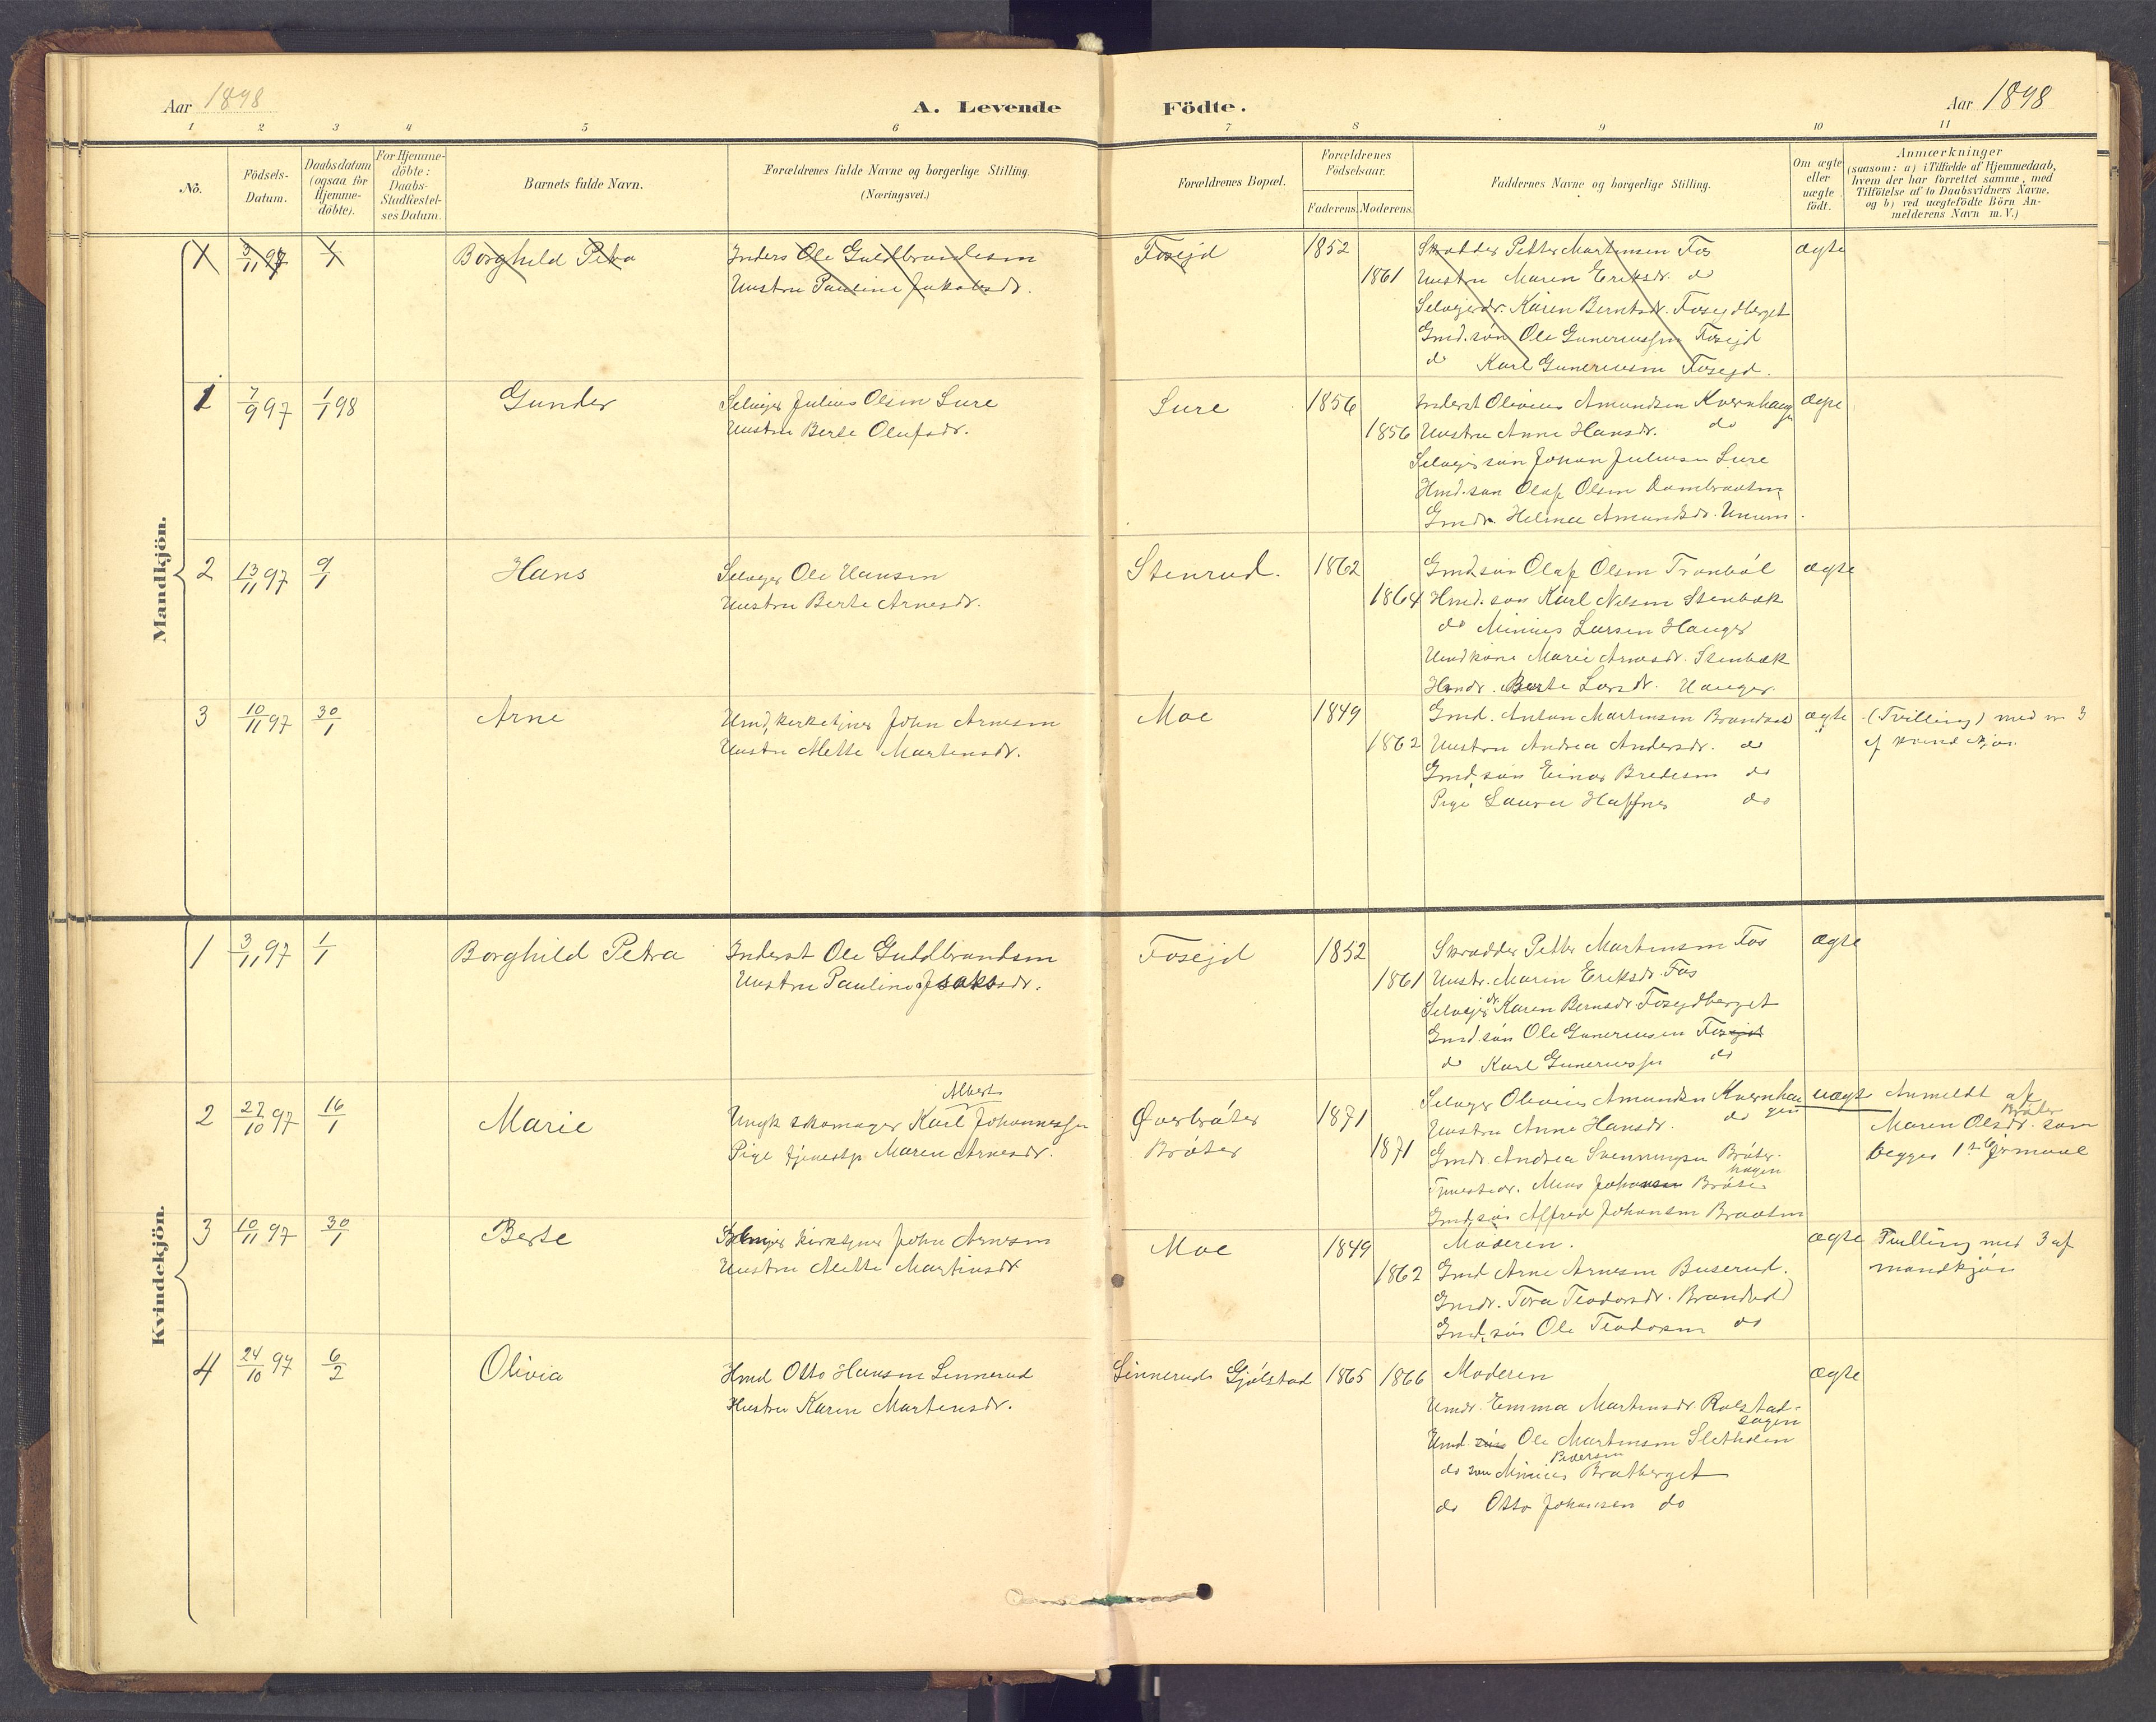 Aar 1898
A. Levende Födte.
Aar 1898
1 2 3 4 5 6 7 8 9 10 11
No.
Födsels-
Datum.
Daabsdatum
(ogsaa for
Hjemme-
döbte).
For Hjemme-
döbte:
Daabs-
Stadfæstel-
ses Datum.
Barnets fulde Navn.
Forældrenes fulde Navne og borgerlige Stilling.
(Næringsvei.)
Forældrenes Bopæl.
Forældrenes
Födselsaar.
Faderens. Moderens.
Faddernes Navne og borgerlige Stilling.
Om ægte
eller
uægte
født.
Anmærkninger
(saasom: a) i Tilfælde af Hjemmedaab,
hvem der har forrettet samme, med
Tilføielse af to Daabsvidners Navne,
og b) ved uægtefödte Börn An-
melderens Navn m. V.)
Mandkjön.
1 3/11 97 1/1 Borghild Petra
Inders Ole Guldbrandsen
Hustru Pauline Jakobsdr.
Fosejd 1852 1861
Skrædder Petter Martinsen Fos
Hustru Maren Eriksdr. do
Selvejerdr. Karen Berntsdr. Fosejdberget
Gmd. søn Ole Guneriussen Fosejd
do Karl Guneriusen Fosejd.
ægte
1 7/9 97 1/1 98 Gunder
Selvejer Julius Olsen Sure
Hustru Berte Olufsdr.
Sure 1856 1856
Inderst Olivius Amundsen Kvernhaugen
Hustru Anne Hansdr. do
Selvejersøn Johan Juliusen Sure
Hmd. søn Olaf Olsen
Gmdr. Helma Amundsdr.
ægte
2 13/11 97 9/1 Hans
Selvejer Ole Hansen
Hustru Berte Arnesdr.
Stenrud. 1862 1864
Gmdsøn Olaf Olsen Tronbøl
Hmd. søn Karl Nilsen Stenbæk
do Minius Larsen Hauger
Hmdkone Marie Arnesdr. Stenbæk
Hmdr. Berte Larsdr. Hauger.
ægte
3 10/11 97 30/1 Arne
Hmd, kirketjner John Arnesen
Hustru Mette Martinsdr.
Moe 1849 1862
Gmd. Anton Martinsen Brandvol
Hustru Andrea Andersdr. do
Gmd, søn Einar Bredesen do
Pige Laura Haffner do
ægte
(Tvilling) med nr 3
af kvindekjøn
Kvindekjön.
1 3/11 97 1/1 Borghild Petra
Inderst Ole Guldbrandsen
Hustru Pauline Jsaksdr.
Fosejd 1852 1861
Skrædder Petter Martinsen Fos
Hustr. Maren Eriksdr. Fos
Selvejerdr. Karen Bernsdr. Fosejdberget
Gmd. søn Ole Gunerinsen Fosejd
do Karl Guneriussen do
ægte
2 27/10 97 16/1 Marie
Albert
Ungk skomager Karl Johannessen
Pige tjenestp Maren Arnesdr.
Øverbråter
Bråter
1871 1871
Selvejer Olivius Amundsen Kvernhaugen
Hustru Anne Hansdr. do
Gmdr. Andrea Svenningsen Bråterhagen
Tjenestedr. Johansen Bråter
Gmd, søn Alfred Johansen Braaten
uægte
Anmeldt af
Maren Olsdr. Bråter som
begges 1ste leiermaal
3 10/11 97 30/1 Berte
Selvejer kirketjner John Arnesen
Hustru Mette Martinsdr
Moe 1849 1862
Moderen.
Gmd Arne Arnesen Buserud.
Gmdr. Tora Teodorsdr. Brandvold
Gmd, søn Ole Teodorsen do
ægte
Tvilling med 3 af
mandkjøn
4 24/10 97 6/2 Olivia
Hmd Otto Hansen Linnerud
Hustru Karen Martinsdr.
Linnerud Gjølstad 1865 1866
Moderen
Hmdr. Emma Martinsdr. Rolstadsagen
Hmd. søn Ole Martinsen Sletholen
do søn Minius Pedersen Bratberget
do Otto Johansen do
ægte